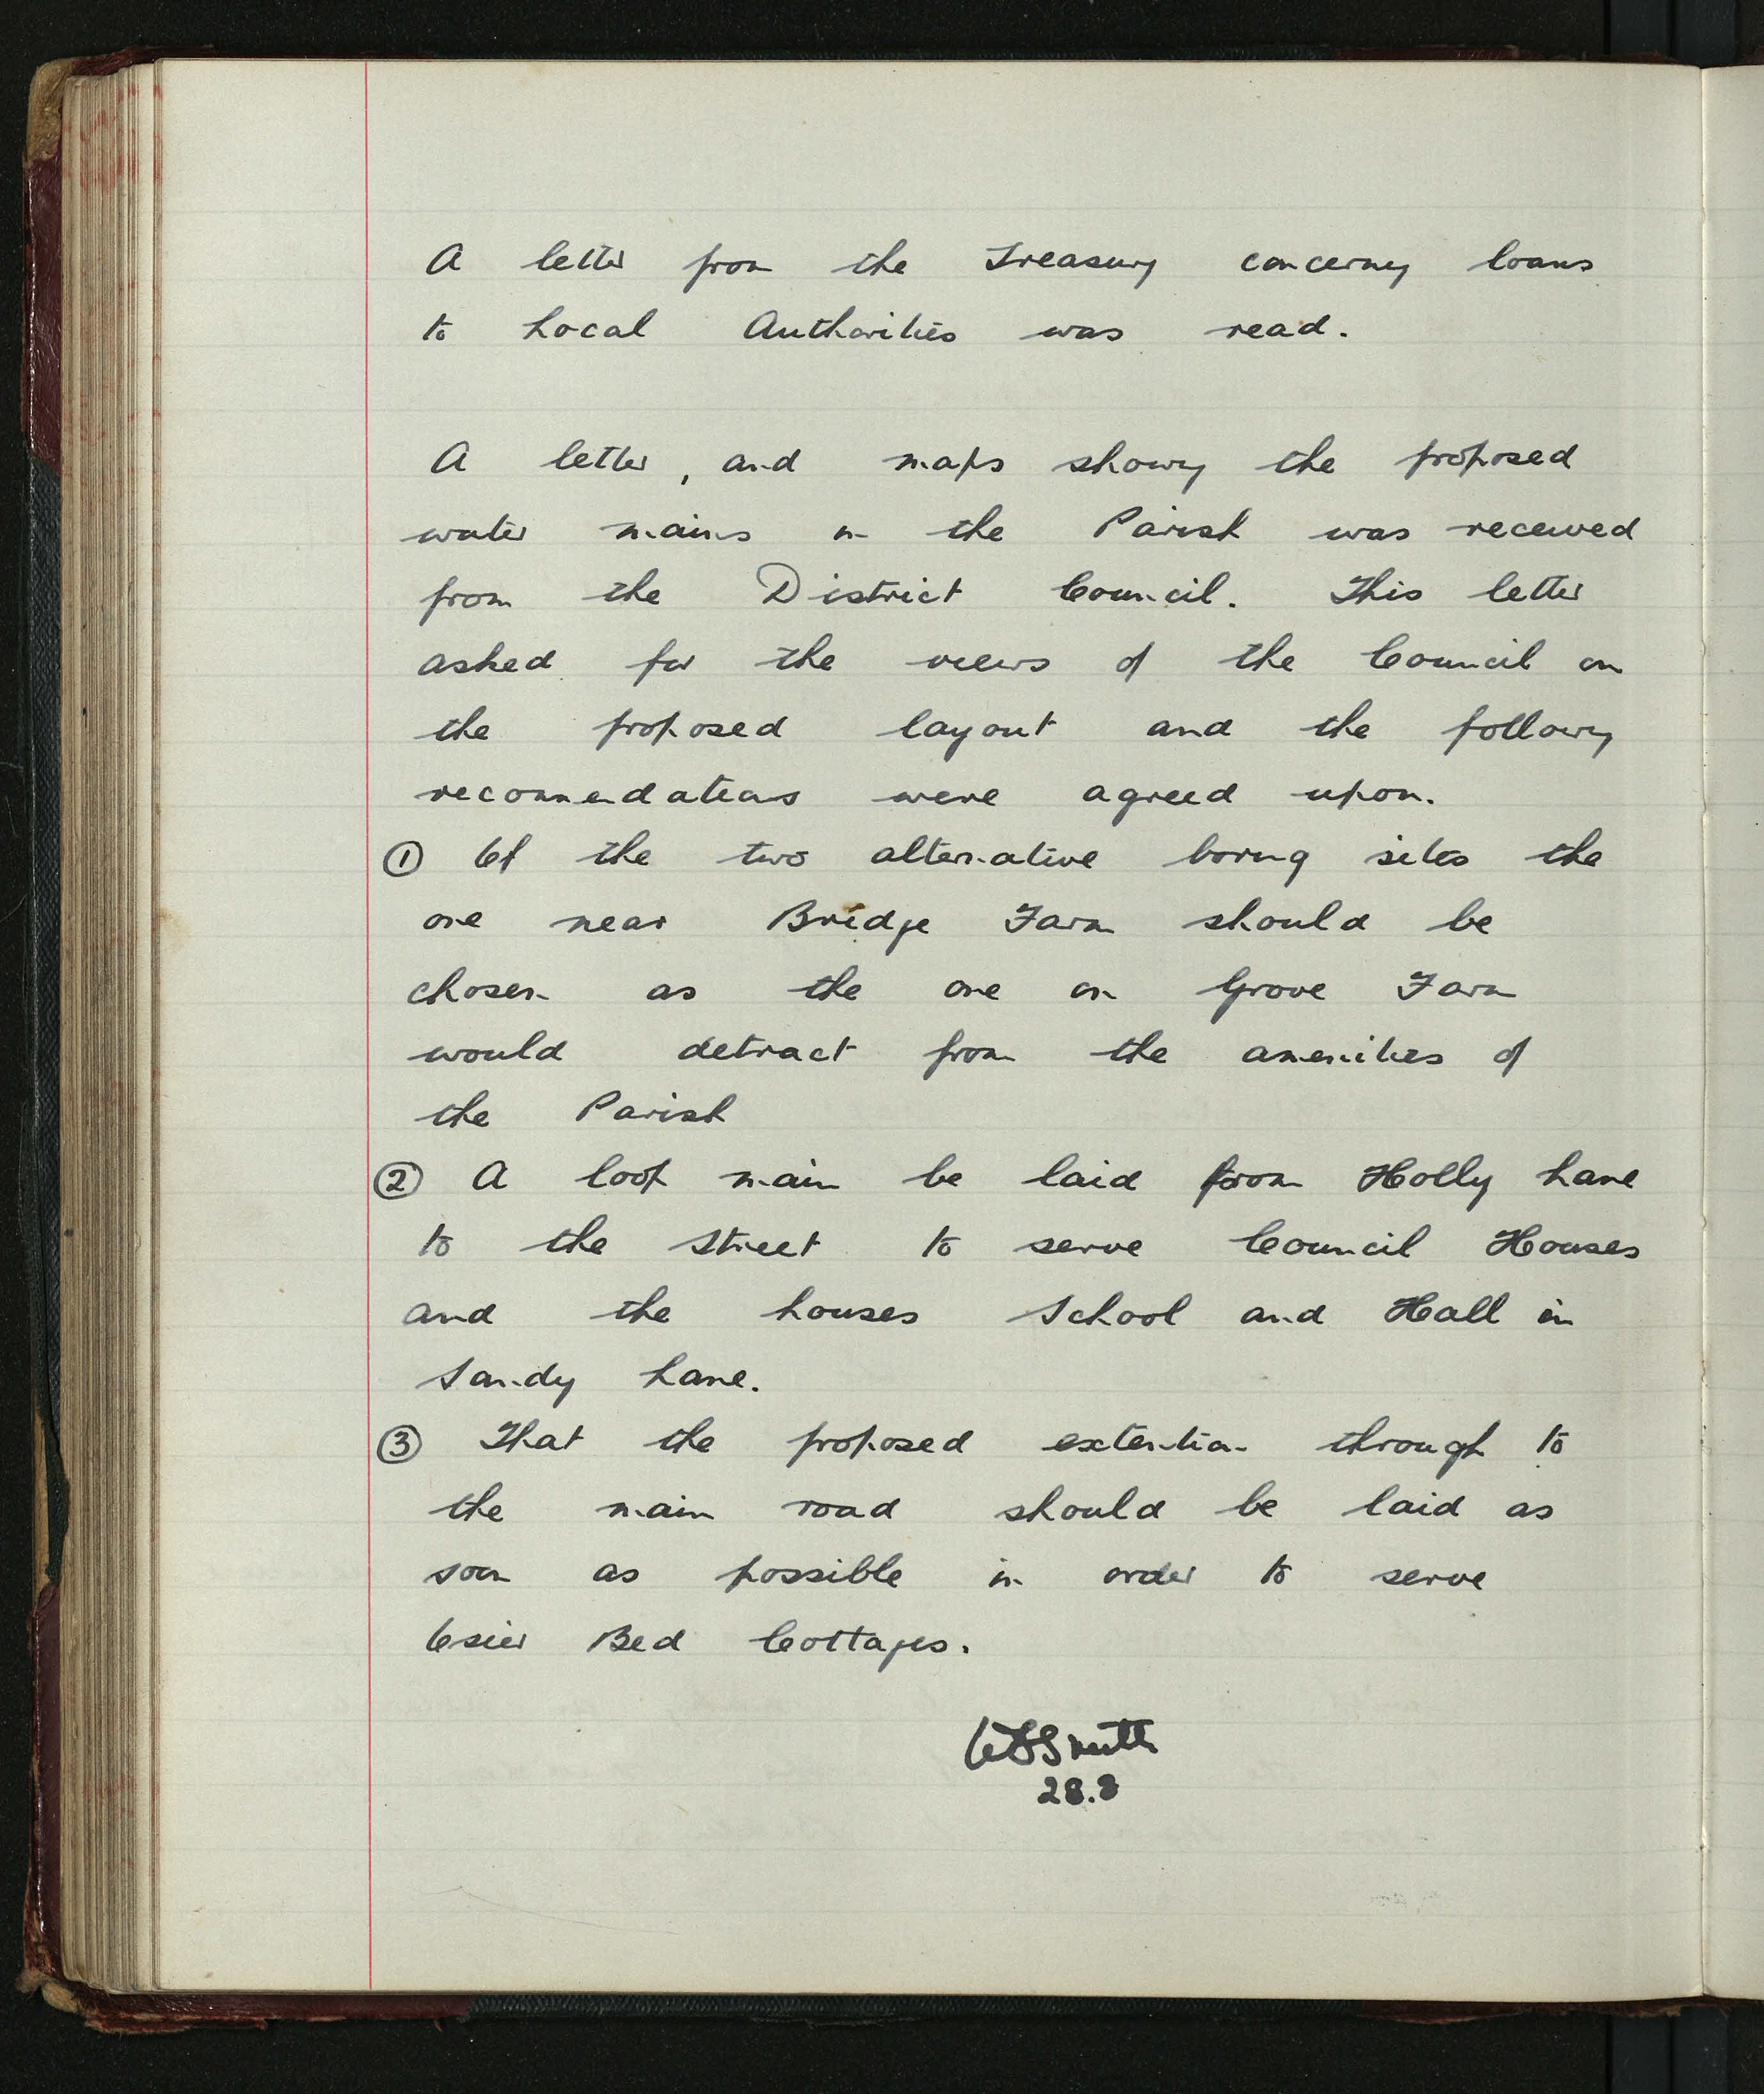 A letter from the Treasury concerning loans
to Local Authorities was read.
A letter, and maps showing the proposed
water mains in the Parish was received
from the District Council. This letter
asked for the views of the Council on
the proposed layout and the following
recommendations were agreed upon.
① Of the two alternative boring sites the
one near Bridge Farm should be
chosen as the one on Grove Farm
would detract from the amenities of
the Parish
② A loop main be laid from Holly Lane
to the Street to serve Council Houses
and the houses School and Hall in
Sandy Lane.
③ That the proposed extention through to
the main road should be laid as
soon as possible in order to serve
Osier Bed Cottages.
Smith
28.8